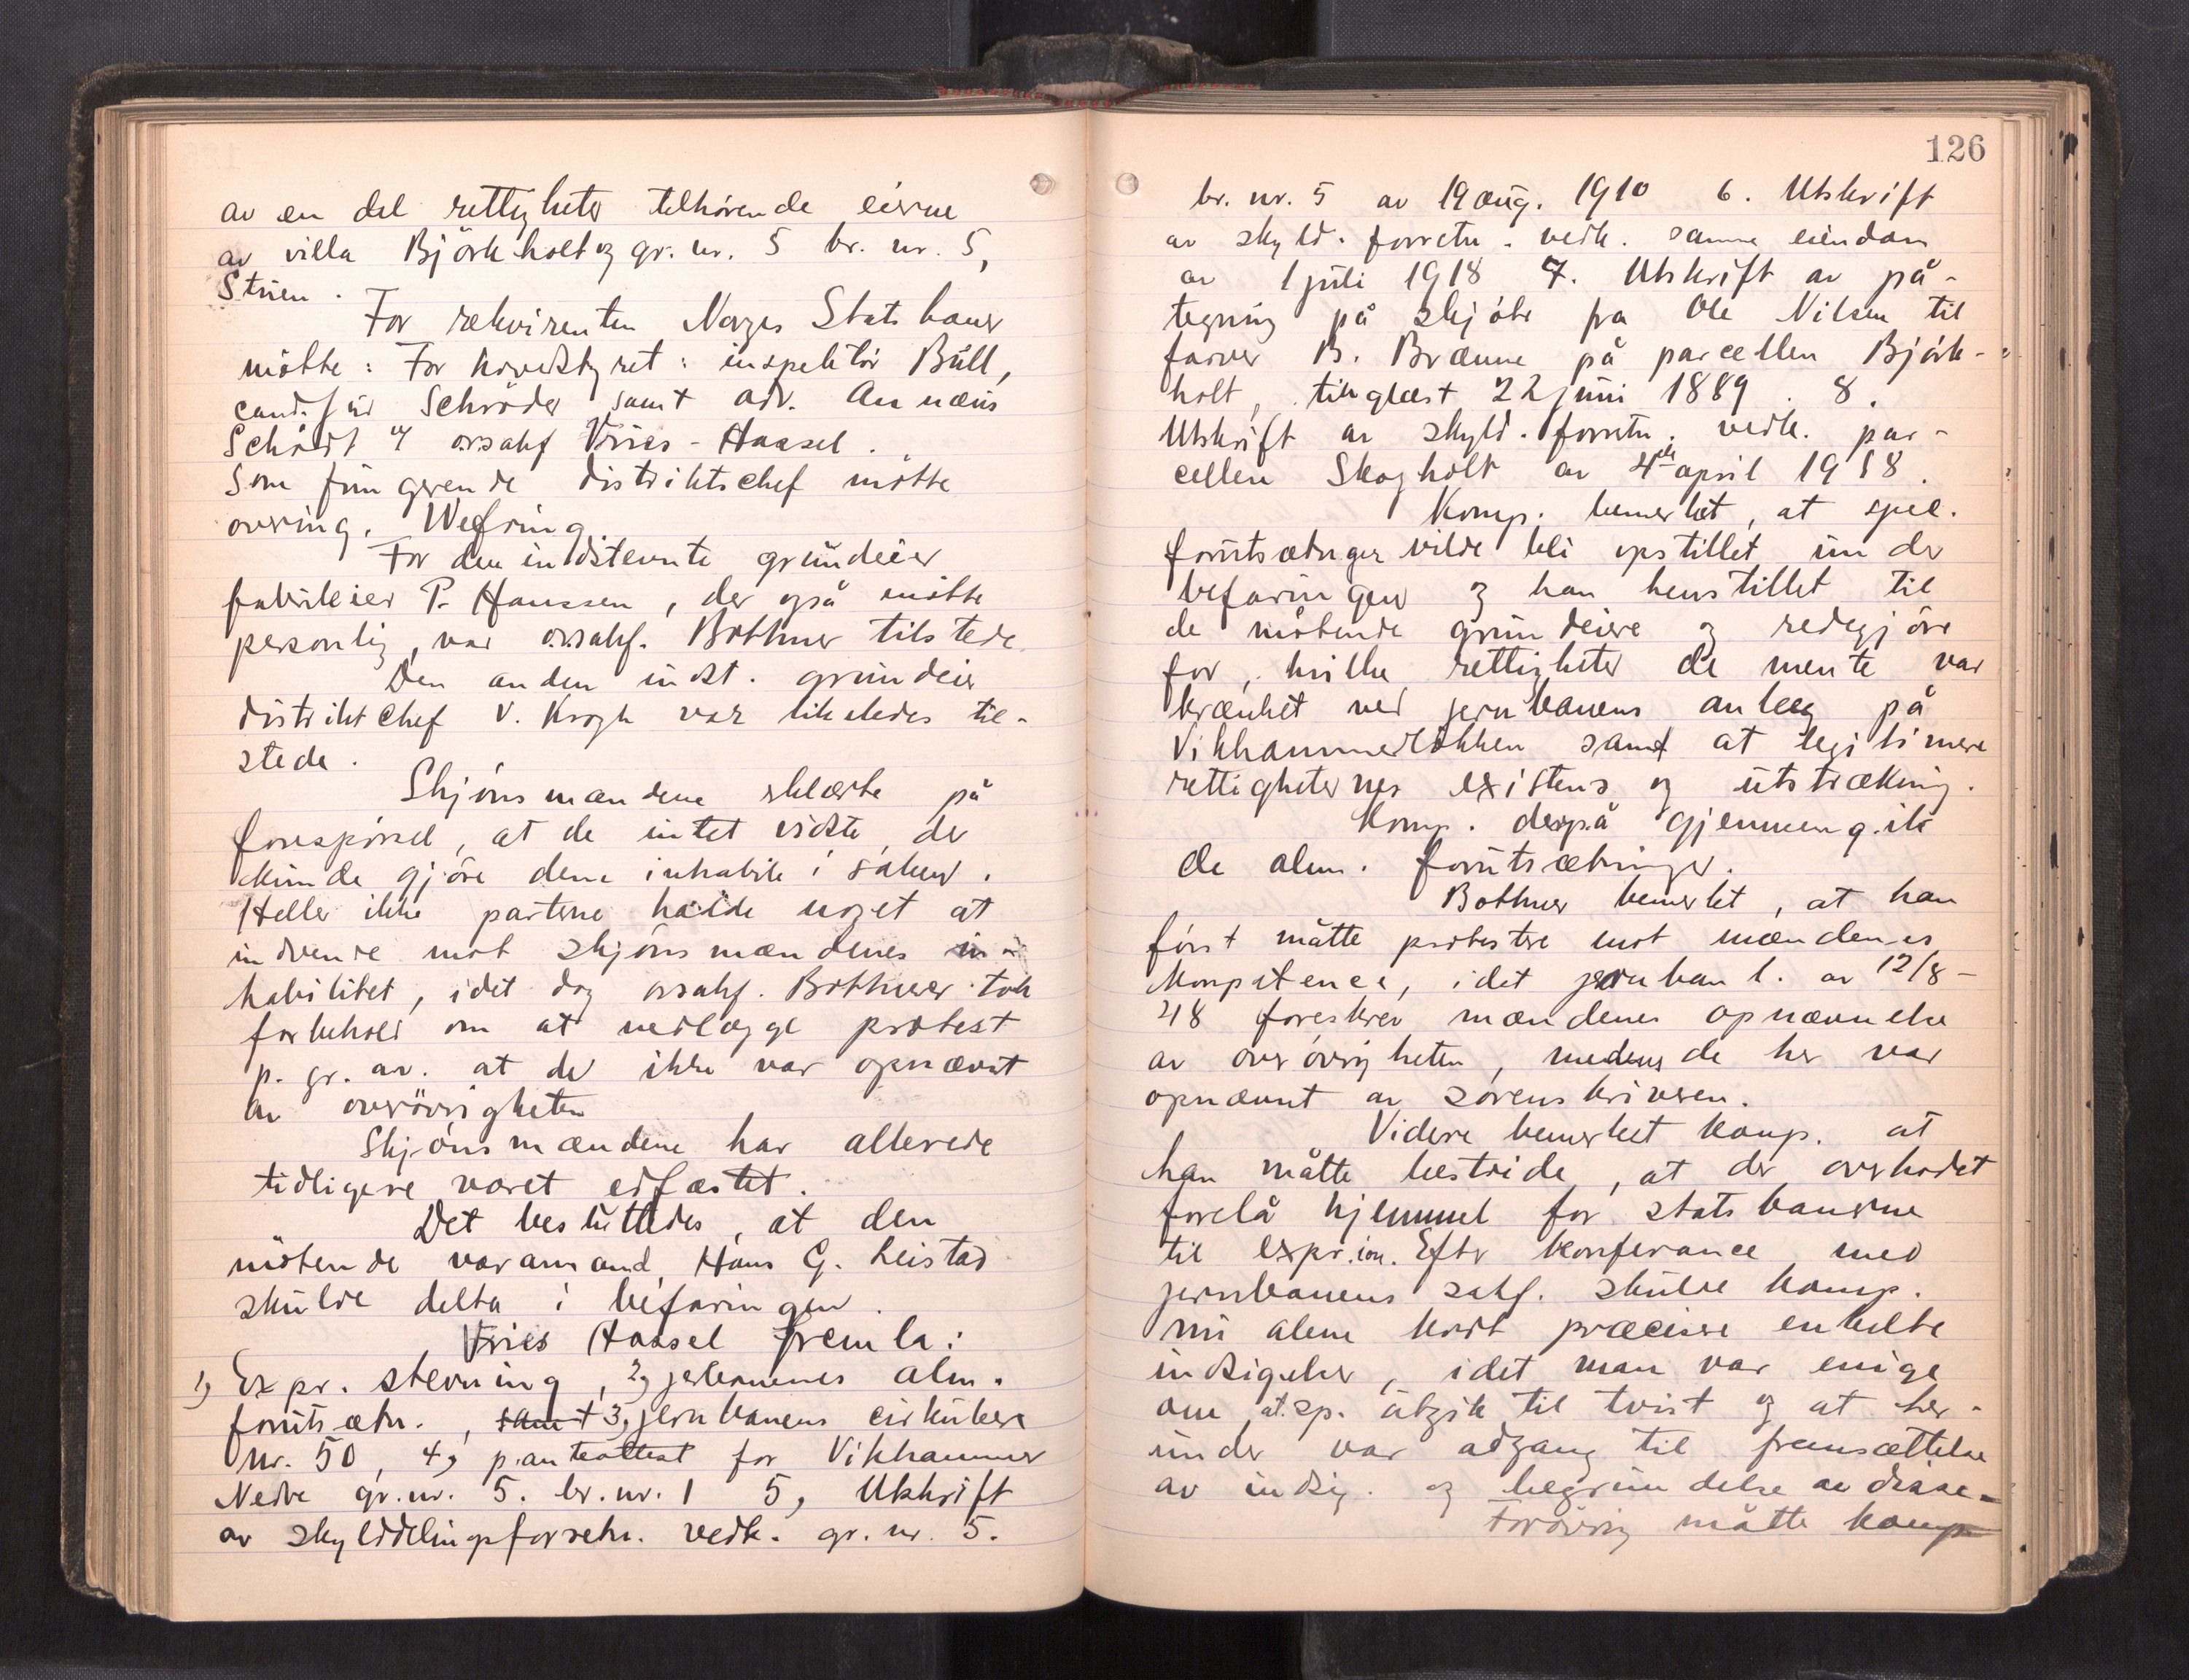 av en del rettigheter tilhørende eierne
av villa Björkholt og gr. nr. 5 br. nr. 5,
Stuen.
For rekvirenten Norges Statsbaner
møtte: For hovedstyret: inspektör Bull,
cand. jur Schröder samt adv. Annæus
Schødt v/ o.r.sakf Vries-Hassel.
Som fungerende distriktschef møtte
overing. Wefring.
For den indstevnte grundeier
fabrikeier P. Hanssen, der også møtte
personlig, var o.r.sakf. Bothner tilstede.
Den anden indst. grundeier
distriktchef V. Krogh var likeledes til-
stede.
Skjønsmændene erklærte på
forespørsel, at de intet visste, der
kunde gjøre dem inhabile i saken.
Heller ikke parterne hadde noget at
indvende mot skjønsmændenes
habilitet, idet dog o.r.sakf. Bothner tok
forbehold om at nedlægge protest
p. gr. av. at de ikke var opnævnt
av overøvrigheten
Skjønsmændene har allerede
tidligere været edfæstet.
Det besluttedes, at den
møtende varamand Hans G. Leistad
skulde delta i befaringen.
Vries Hassel fremla:
1) Expr. stevning, 2) jerbanenes alm.
forutsætn., samt 3, jernbanens cirkulære
nr. 50, 4, panteattest for Vikhammer
Nedre gr. nr. 5. br. nr. 1 5, Utskrift
av skylddelingsforretn. vedk. gr. nr. 5.
126
br. nr. 5 av 19 aug. 1910 6. Utskrift
av skyld. forretn. vedk. samme eiendom
av 1 juli 1918 7. Utskrift av på-
tegning på skjøte fra Ole Nilsen til
farver B. Brænne på parcellen Björk-
holt, tinglæst 22 juni 1889. 8.
Utskrift av skyld. forretn. vedk. par-
cellen Skogholt av 4de april 1918.
Komp. bemerket, at spec.
forutsætnger vilde bli opstillet under
befaringen og han henstillet til
de møtende grundeiere og redegjøre
for, hvilke rettigheter de mente var
krænket ved jernbanens anlæg på
Vikhammerløkken samt at legitimere
rettigheternes existens og utstrækning.
Komp. derpå gjennemgik
de alm. forutsætninger.
Bothner bemerket, at han
først måtte protestere mot mændenes
kompetence, idet jernban l. av 12/8-
48 foreskrev mændenes opnævnelse
av overøvrigheten, medens de her var
opnævnt av sorenskriveren.
Videre bemerket komp. at
han måtte bestride, at der overhodet
forelå hjemmel for statsbanerne
til expr.ion. Efter konferance med
jernbanens sakf. skulde komp.
nu alene kort præcisere enkelte
indsigelser, idet man var enige
om at sp. utgik til tvist og at her-
under var adgang til fremsættelse
av indsig. og begrundelse av disse-
Forøvrig måtte komp